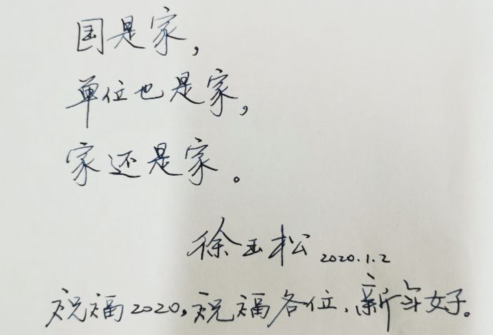 国是家，
单位也是家，
家还是家。
徐玉松 2020.1.2
祝福2020，祝福各位，新年好。